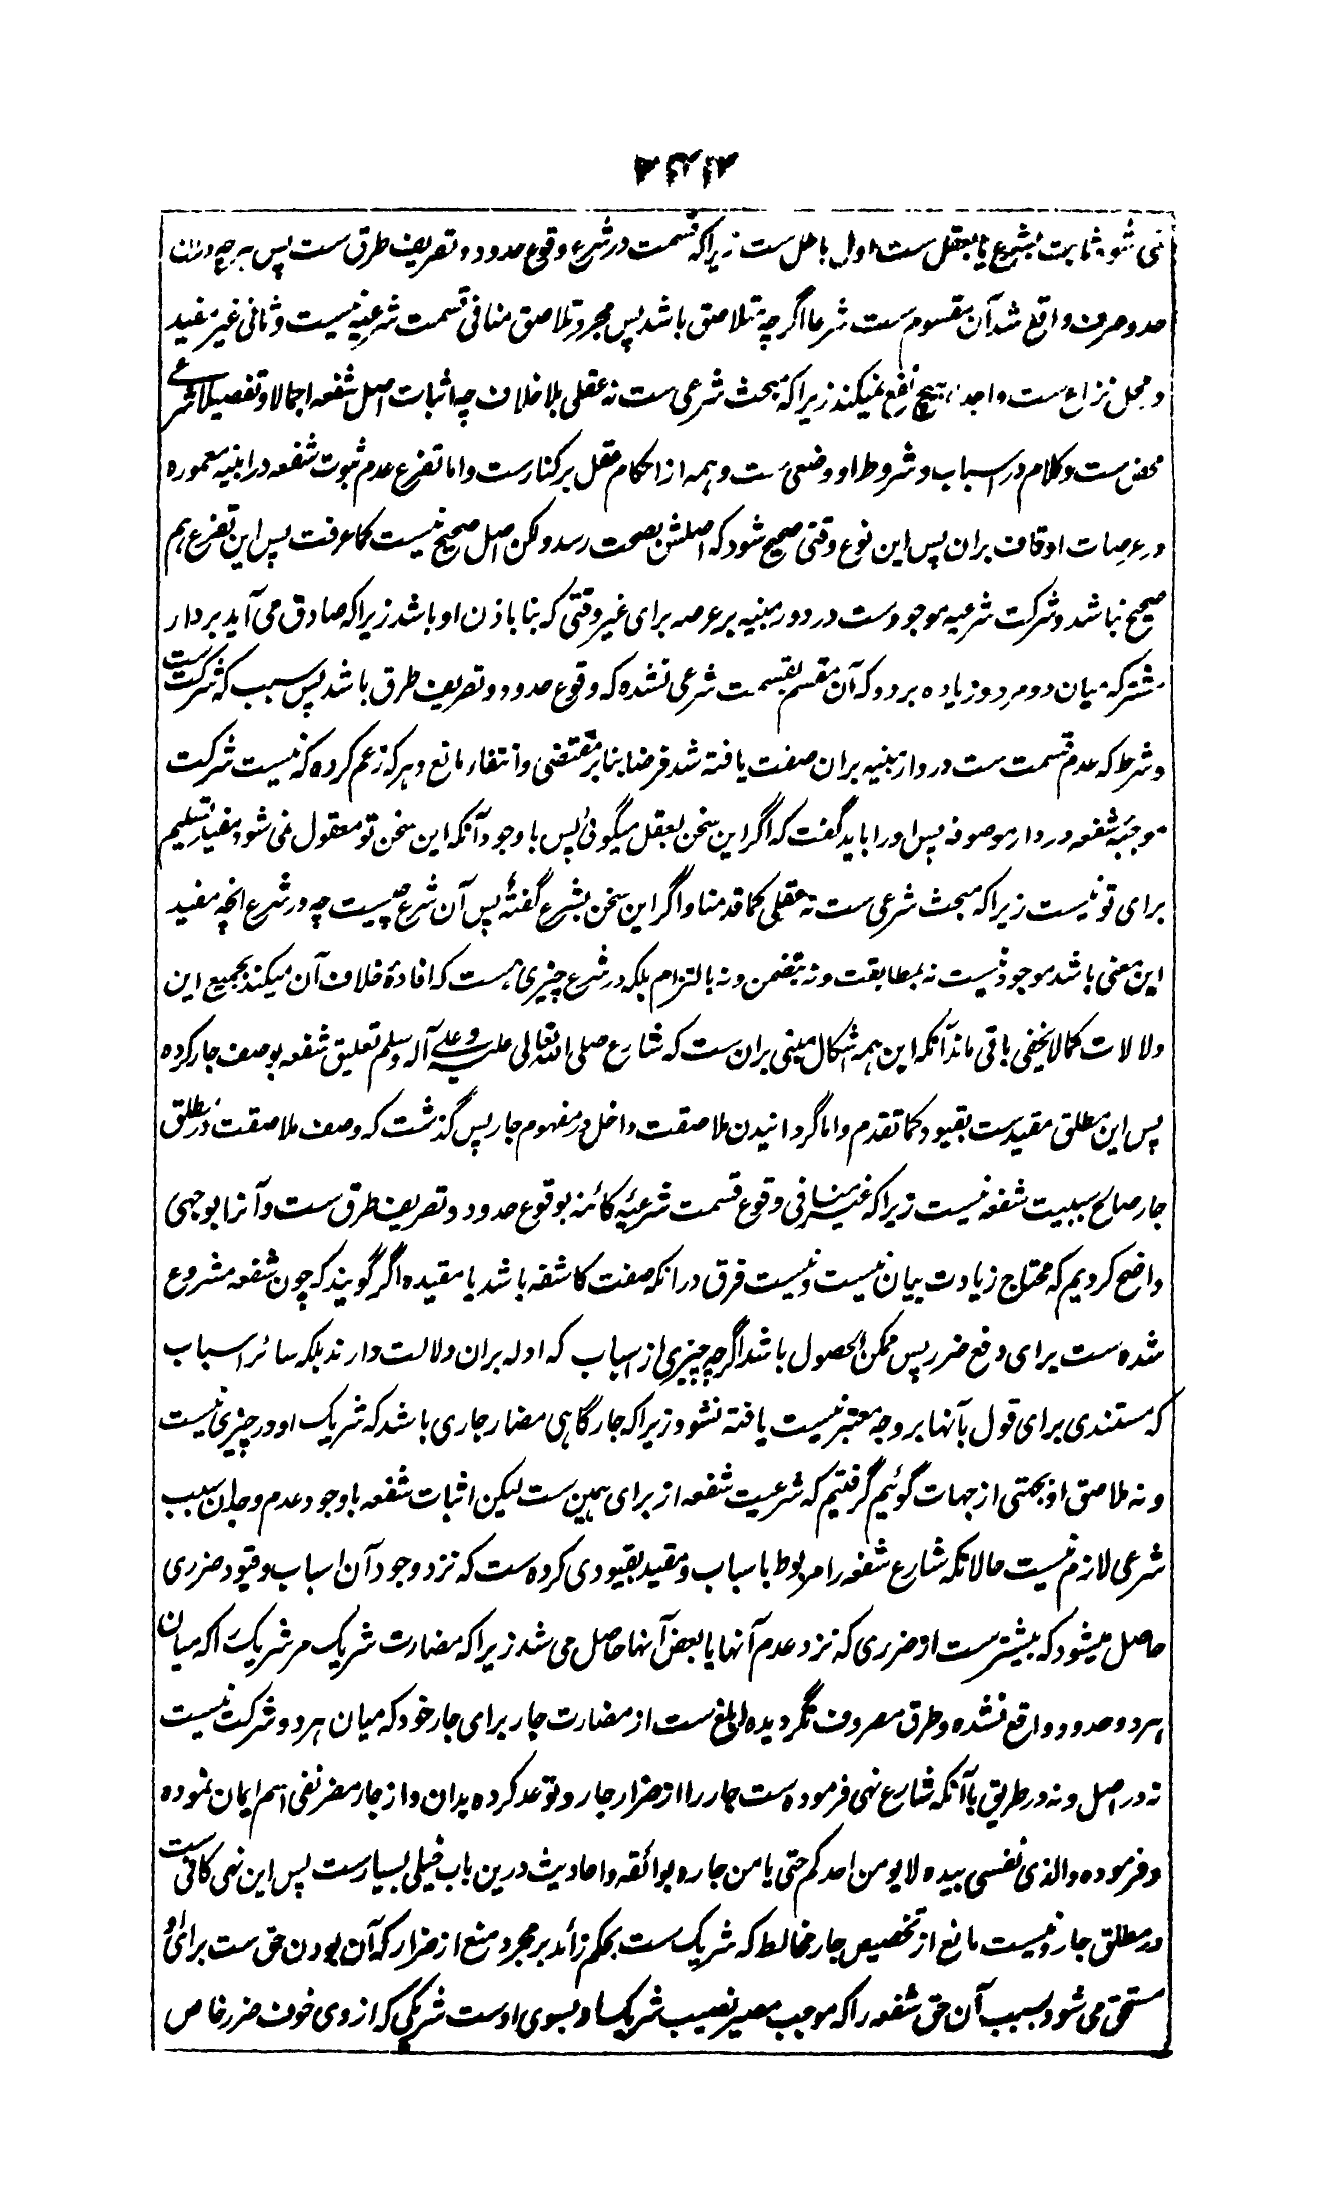 نمی شود ثابت بشرع یا بعقل ست اول باطل ست زیراکه قسمت در شرع وقوع حدود و تصریف طرق ست پس هرچه دران
حد و صرف واقع شد آن مقسوم ست شرعا اگرچه متلاصق باشد پس مجرد تلاصق منافی قسمت شرعیه نیست و ثانی غیر مفید
در محل نزاع ست واحد را هیچ نفع نمیکند زیراکه مبحث شرعی ست نه عقلی بلا خلاف چه اثبات اصل شفعه اجمالا و تفصیلا شرعی
محض ست و کلام در اسباب و شروط او وضعی ست و همه از احکام عقل برکنار ست و اما تفرع عدم ثبوت شفعه در ابنیه معموره
در عرصات اوقاف بران پس این نوع وقتی صحیح شود که اصلش بصحت رسد و لکن اصل صحیح نیست کما عرفت پس این تفرع هم
صحیح نباشد و شرکت شرعیه موجود ست در دور مبنیه بر عرصه برای غیر وقتی که بنا باذن او باشد زیراکه صادق می آید بر دار
مشترکه میان دو مرد و زیاده بر دو که آن مقسم بقسمت شرعی نشده که وقوع حدود و تصریف طرق باشد پس سبب که شرکت ست
و شرط که عدم قسمت ست در دار مبنیه بران صفت یافته شد فرضا بنا بر مقتضی و انتفاء مانع و هرکه زعم کرده که نیست شرکت
موجبه شفعه در دار موصوفه پس او را باید گفت که اگر این سخن بعقل میگوئی پس با وجود آنکه این سخن تو معقول نمی شود مفید تسلیم
برای تو نیست زیراکه مبحث شرعی ست نه عقلی کما قدمنا و اگر این سخن بشرع گفتهٔ پس آن شرع چیست چه در شرع آنچه مفید
این معنی باشد موجود نیست نه بمطابقت و نه بتضمن و نه بالتزام بلکه در شرع چیزی هست که افادهٔ خلاف آن میکند بجمیع این
دلالات کما لا یخفی باقی ماند آنکه این همه اشکال مبنی بران ست که شارع صلی الله تعالی علیه و علی آله و سلم تعلیق شفعه بوصف جار کرده
پس این مطلق مقید ست بقیود کما تقدم و اما گردانیدن ملاصقت داخل در مفهوم جار پس گذشت که وصف ملاصقت در مطلق
جار صالح سببیت شفعه نیست زیراکه غیر منافی وقوع قسمت شرعیه کائنه بوقوع حدود و تصریف طرق ست و آنرا بوجهی
واضح کردیم که محتاج زیادت بیان نیست و نیست فرق در آنکه صفت کاشفه باشد یا مقیده اگر گویند که چون شفعه مشروع
شده ست برای دفع ضرر پس ممکن الحصول باشد اگرچه چیزی از اسباب که ادله بران دلالت دارند بلکه سائر اسباب
که مستندی برای قول بآنها بر وجه معتبر نیست یافته نشود زیراکه جار گاهی مضار جاری باشد که شریک او در چیزی نیست
و نه ملاصق او بجهتی از جهات گوئیم گرفتیم که شرعیت شفعه از برای همین ست لیکن اثبات شفعه با وجود عدم وجدان سبب
شرعی لازم نیست حالانکه شارع شفعه را مربوط باسباب و مقید بقیودی کرده ست که نزد وجود آن اسباب و قیود ضرری
حاصل میشود که بیشتر ست از ضرری که نزد عدم آنها یا بعض آنها حاصل می شد زیراکه مضارت شریک مر شریک را که میان
هر دو حدود واقع نشده و طرق مصروف نگردیده ابلغ ست از مضارت جار برای جار خود که میان هر دو شرکت نیست
نه در اصل و نه در طریق با آنکه شارع نهی فرموده ست جار را از ضرار جار و توعد کرده بدان و از جار مضر نفی اسم ایمان نموده
و فرموده والذی نفسی بیده لا یومن احدکم حتی یامن جاره بوائقه و احادیث درین باب خیلی بسیار ست پس این نهی کافی ست
در مطلق جار و نیست مانع از تخصیص جار مخالط که شریک ست بحکم زائد بر مجرد منع از ضرار که آن بودن حق ست برای او
مستحق می شود بسبب آن حق شفعه را که موجب مصیر نصیب شریک او بسوی اوست شریکی که از وی خوف ضرر خاص